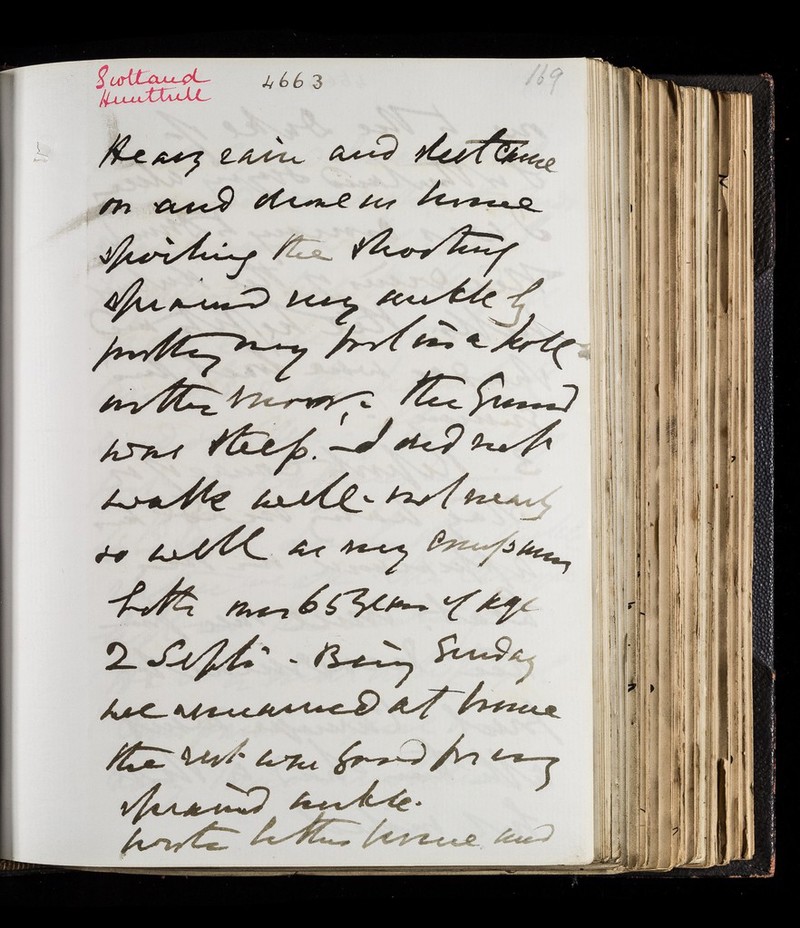 Scotland
Hunthill
4663
169
Heavy rain and sleet came
on and drove us home
spoiling the shooting
sprained my ankle by
putting my foot in a hole
on the moor. The Ground
was steep. I did not
walk well - not nearly
so well as my companions
both over 65 years of age
2 Septr - Being Sunday
we remained at home
the rest was good for my
sprained ankle.
wrote letters home and